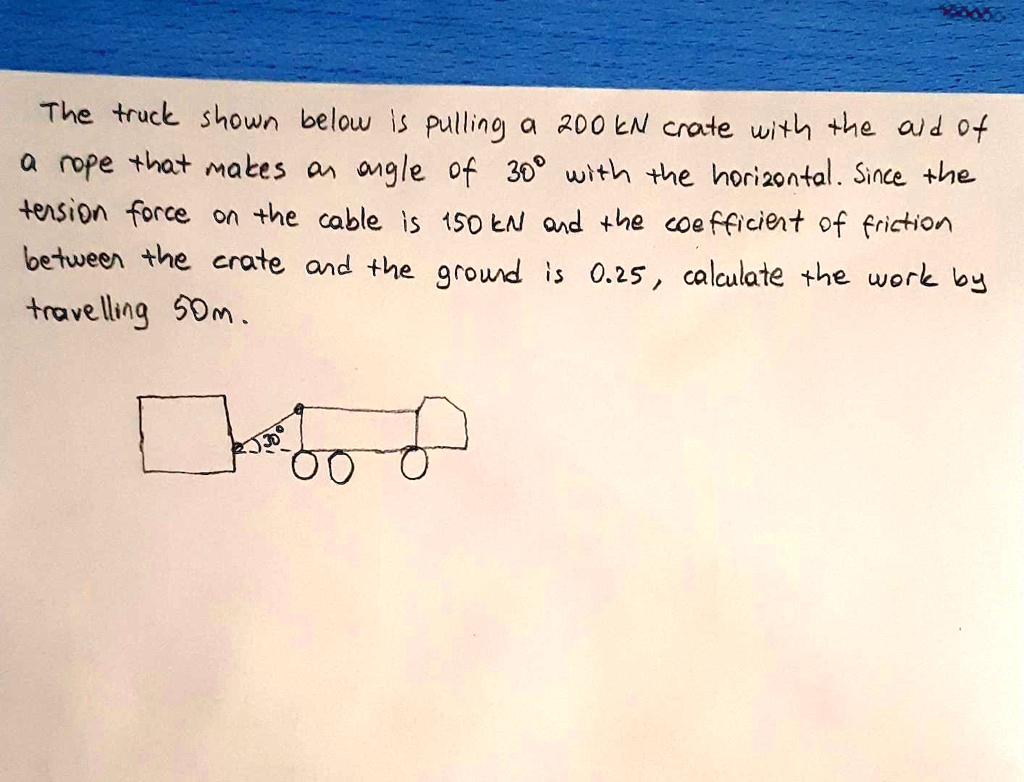 The truck shown below is pulling a 200 kN crate with the aid of
a rope that makes an angle of 30° with the horizontal. Since the
tension force on the cable is 150 kN and the coefficient of friction
between the crate and the ground is 0.25, calculate the work by
travelling 50m.
30°